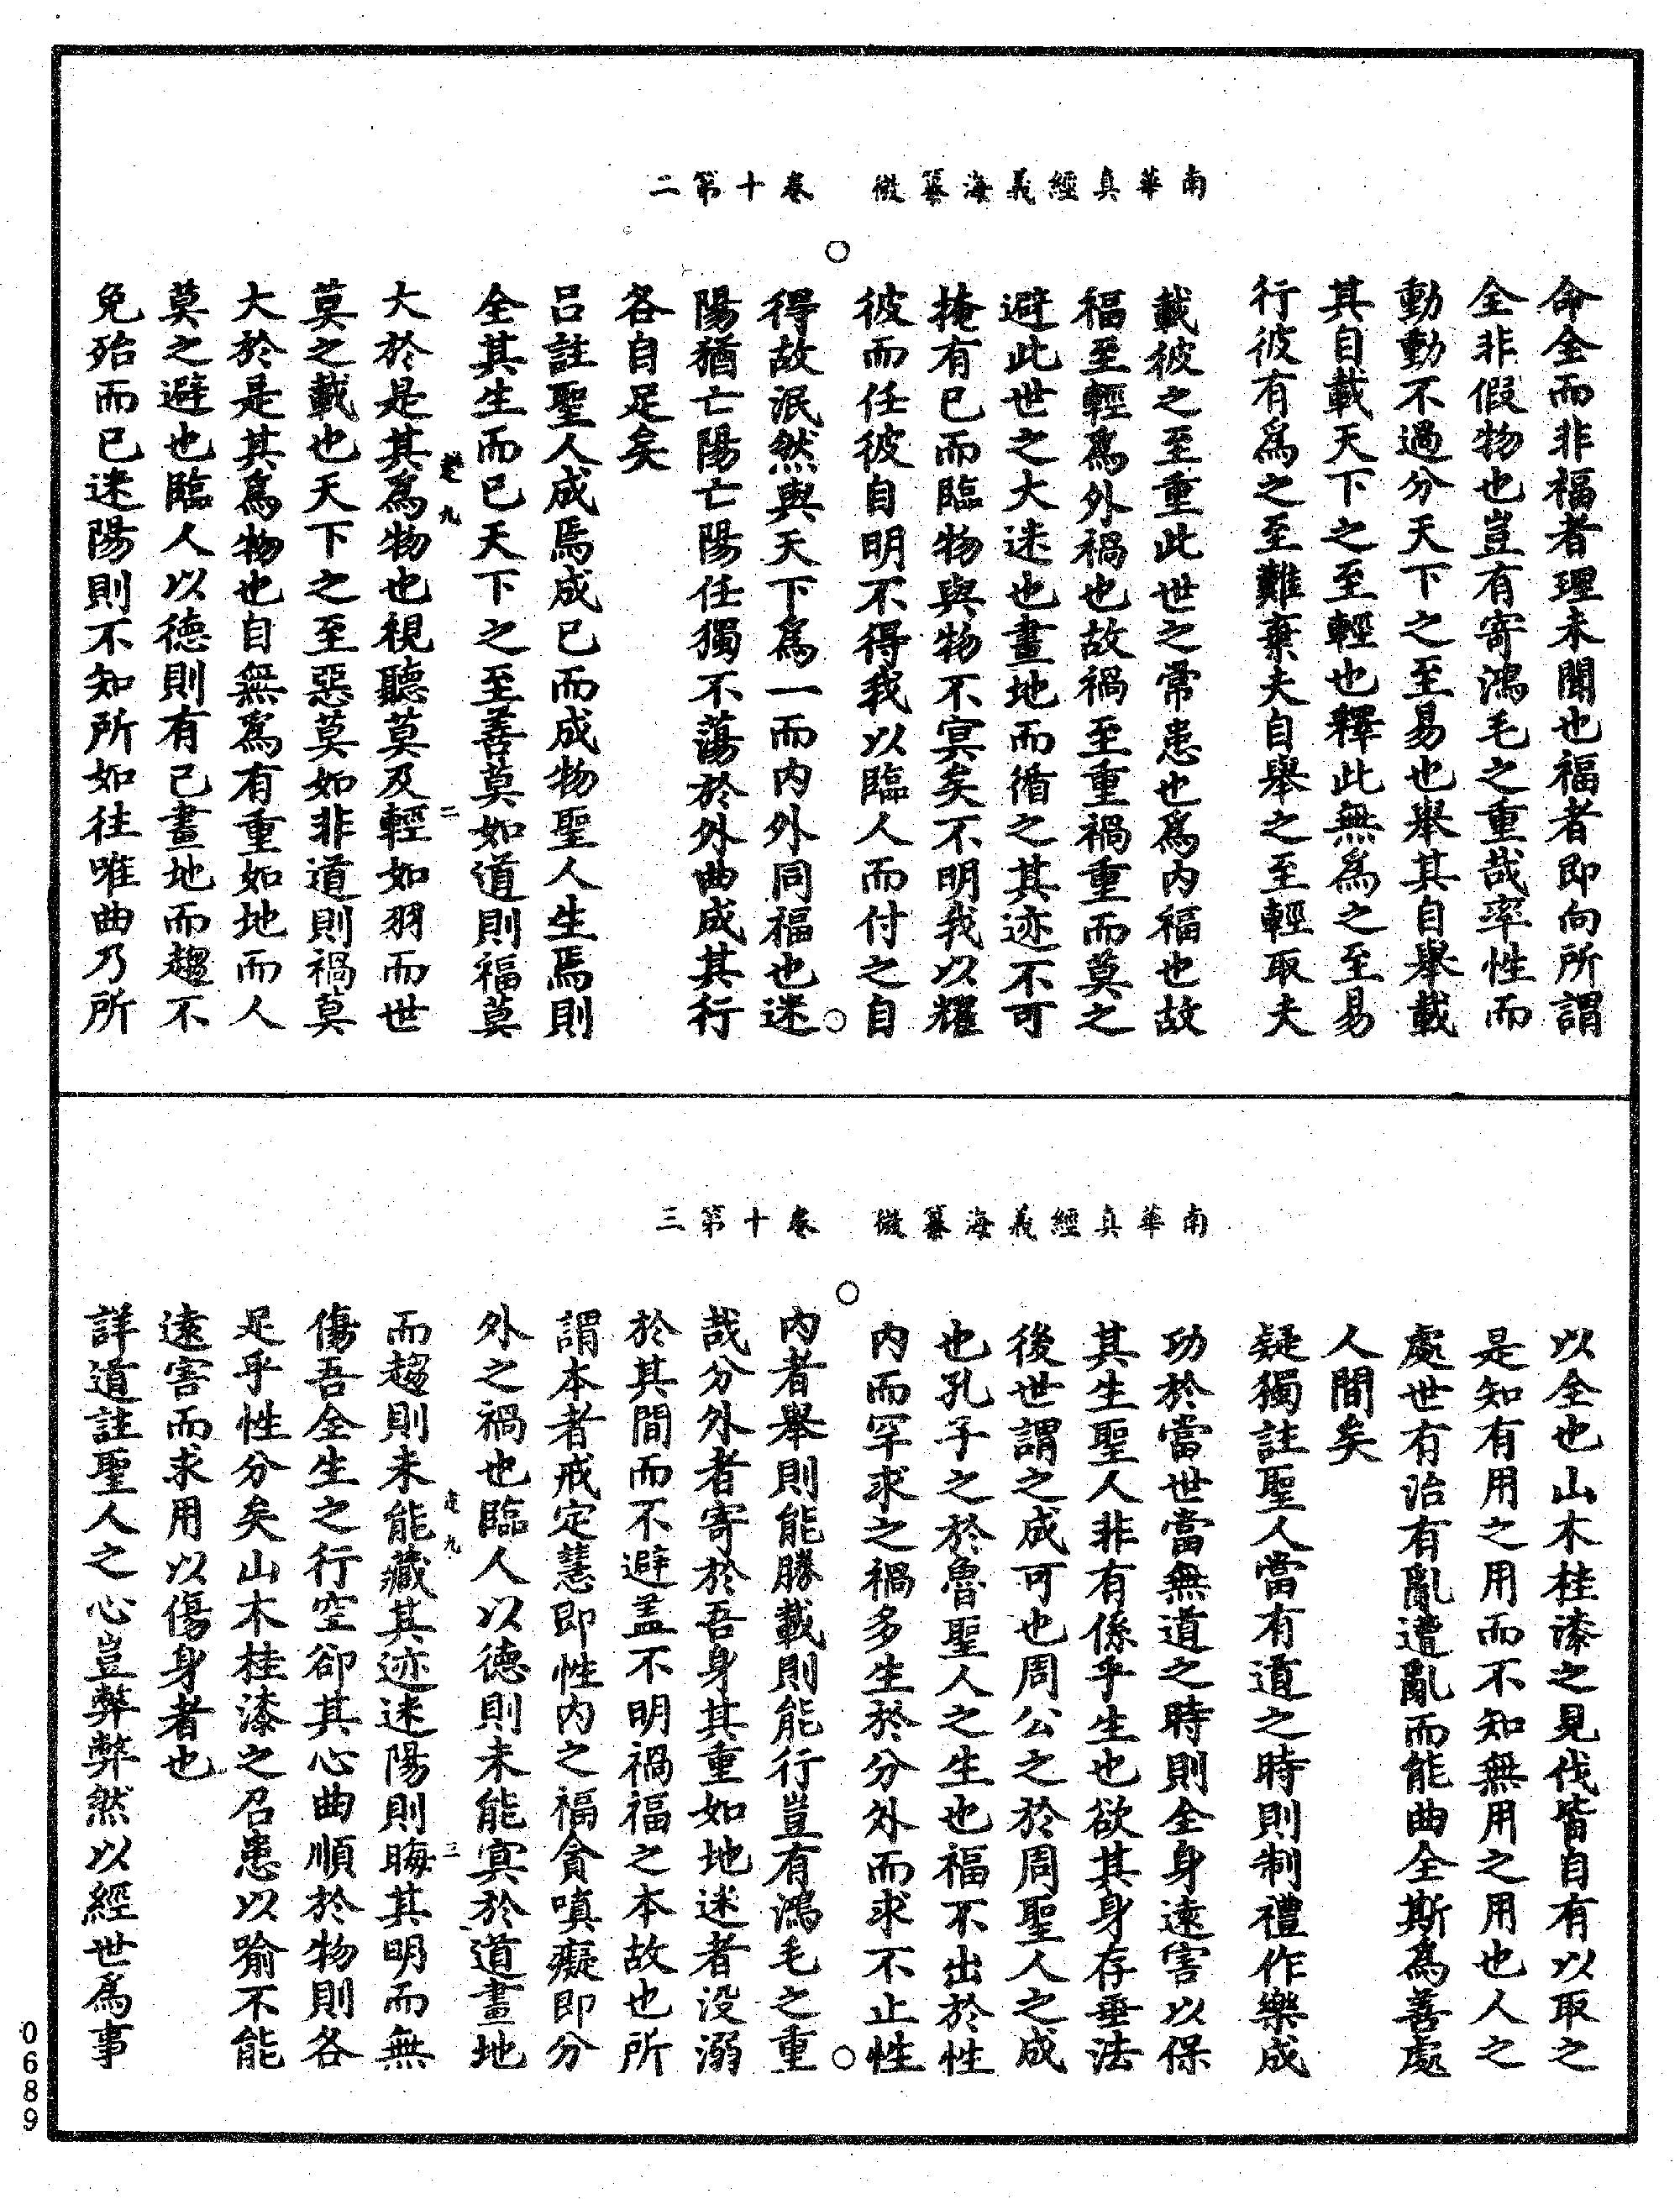 南華真經義海纂微　卷十第二
命全而非福者理未聞也福者即向所謂
全非假物也豈有寄鴻毛之重哉率性而
動動不過分天下之至易也舉其自舉載
其自載天下之至輕也釋此無為之至易
行彼有為之至難棄夫自舉之至輕取夫
載彼之至重此世之常患也為內福也故
福至輕為外禍也故禍至重禍重而莫之
避此世之大迷也畫地而循之其迹不可
掩有已而臨物與物不冥矣不明我以耀
彼而任彼自明不得我以臨人而付之自
得故泯然與天下為一而内外同福也迷
陽猶亡陽亡陽任獨不蕩於外曲成其行
各自足矣
呂註聖人成焉成已而成物聖人生焉則
全其生而已天下之至善莫如道則福莫
大於是其為物也視聽莫及輕如羽而世
莫之載也天下之至惡莫如非道則禍莫
大於是其為物也自無為有重如地而人
莫之避也臨人以德則有已畫地而趨不
免殆而已迷陽則不知所如往唯曲乃所
南華真經義海纂微　卷十第三
以全也山木桂漆之見伐皆自有以取之
是知有用之用而不知無用之用也人之
處世有治有亂遭亂而能曲全斯為善處
人間矣
疑獨註聖人當有道之時則制禮作樂成
功於當世當無道之時則全身遠害以保
其生聖人非有係乎生也欲其身存垂法
後世謂之成可也周公之於周聖人之成
也孔子之於魯聖人之生也福不出於性
内而罕求之禍多生於分外而求不止性
内者舉則能勝載則能行豈有鴻毛之重
哉分外者寄於吾身其重如地迷者没溺
於其間而不避盖不明禍福之本故也所
謂本者戒定慧即性内之福貪嗔癡即分
外之禍也臨人以德則未能冥於道畫地
而趨則未能藏其迹迷陽則晦其明而無
傷吾全生之行空卻其心曲順於物則各
足乎性分矣山木桂漆之召患以喻不能
遠害而求用以傷身者也
詳道註聖人之心豈弊弊然以經世為事
0689